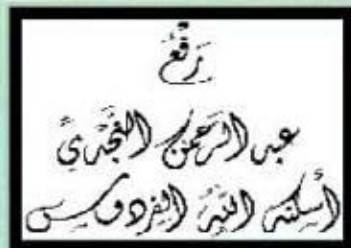 رَفْعُ
عبد الرَّحمن النَّجْدِيّ
أسكنه اللهُ الفردوس